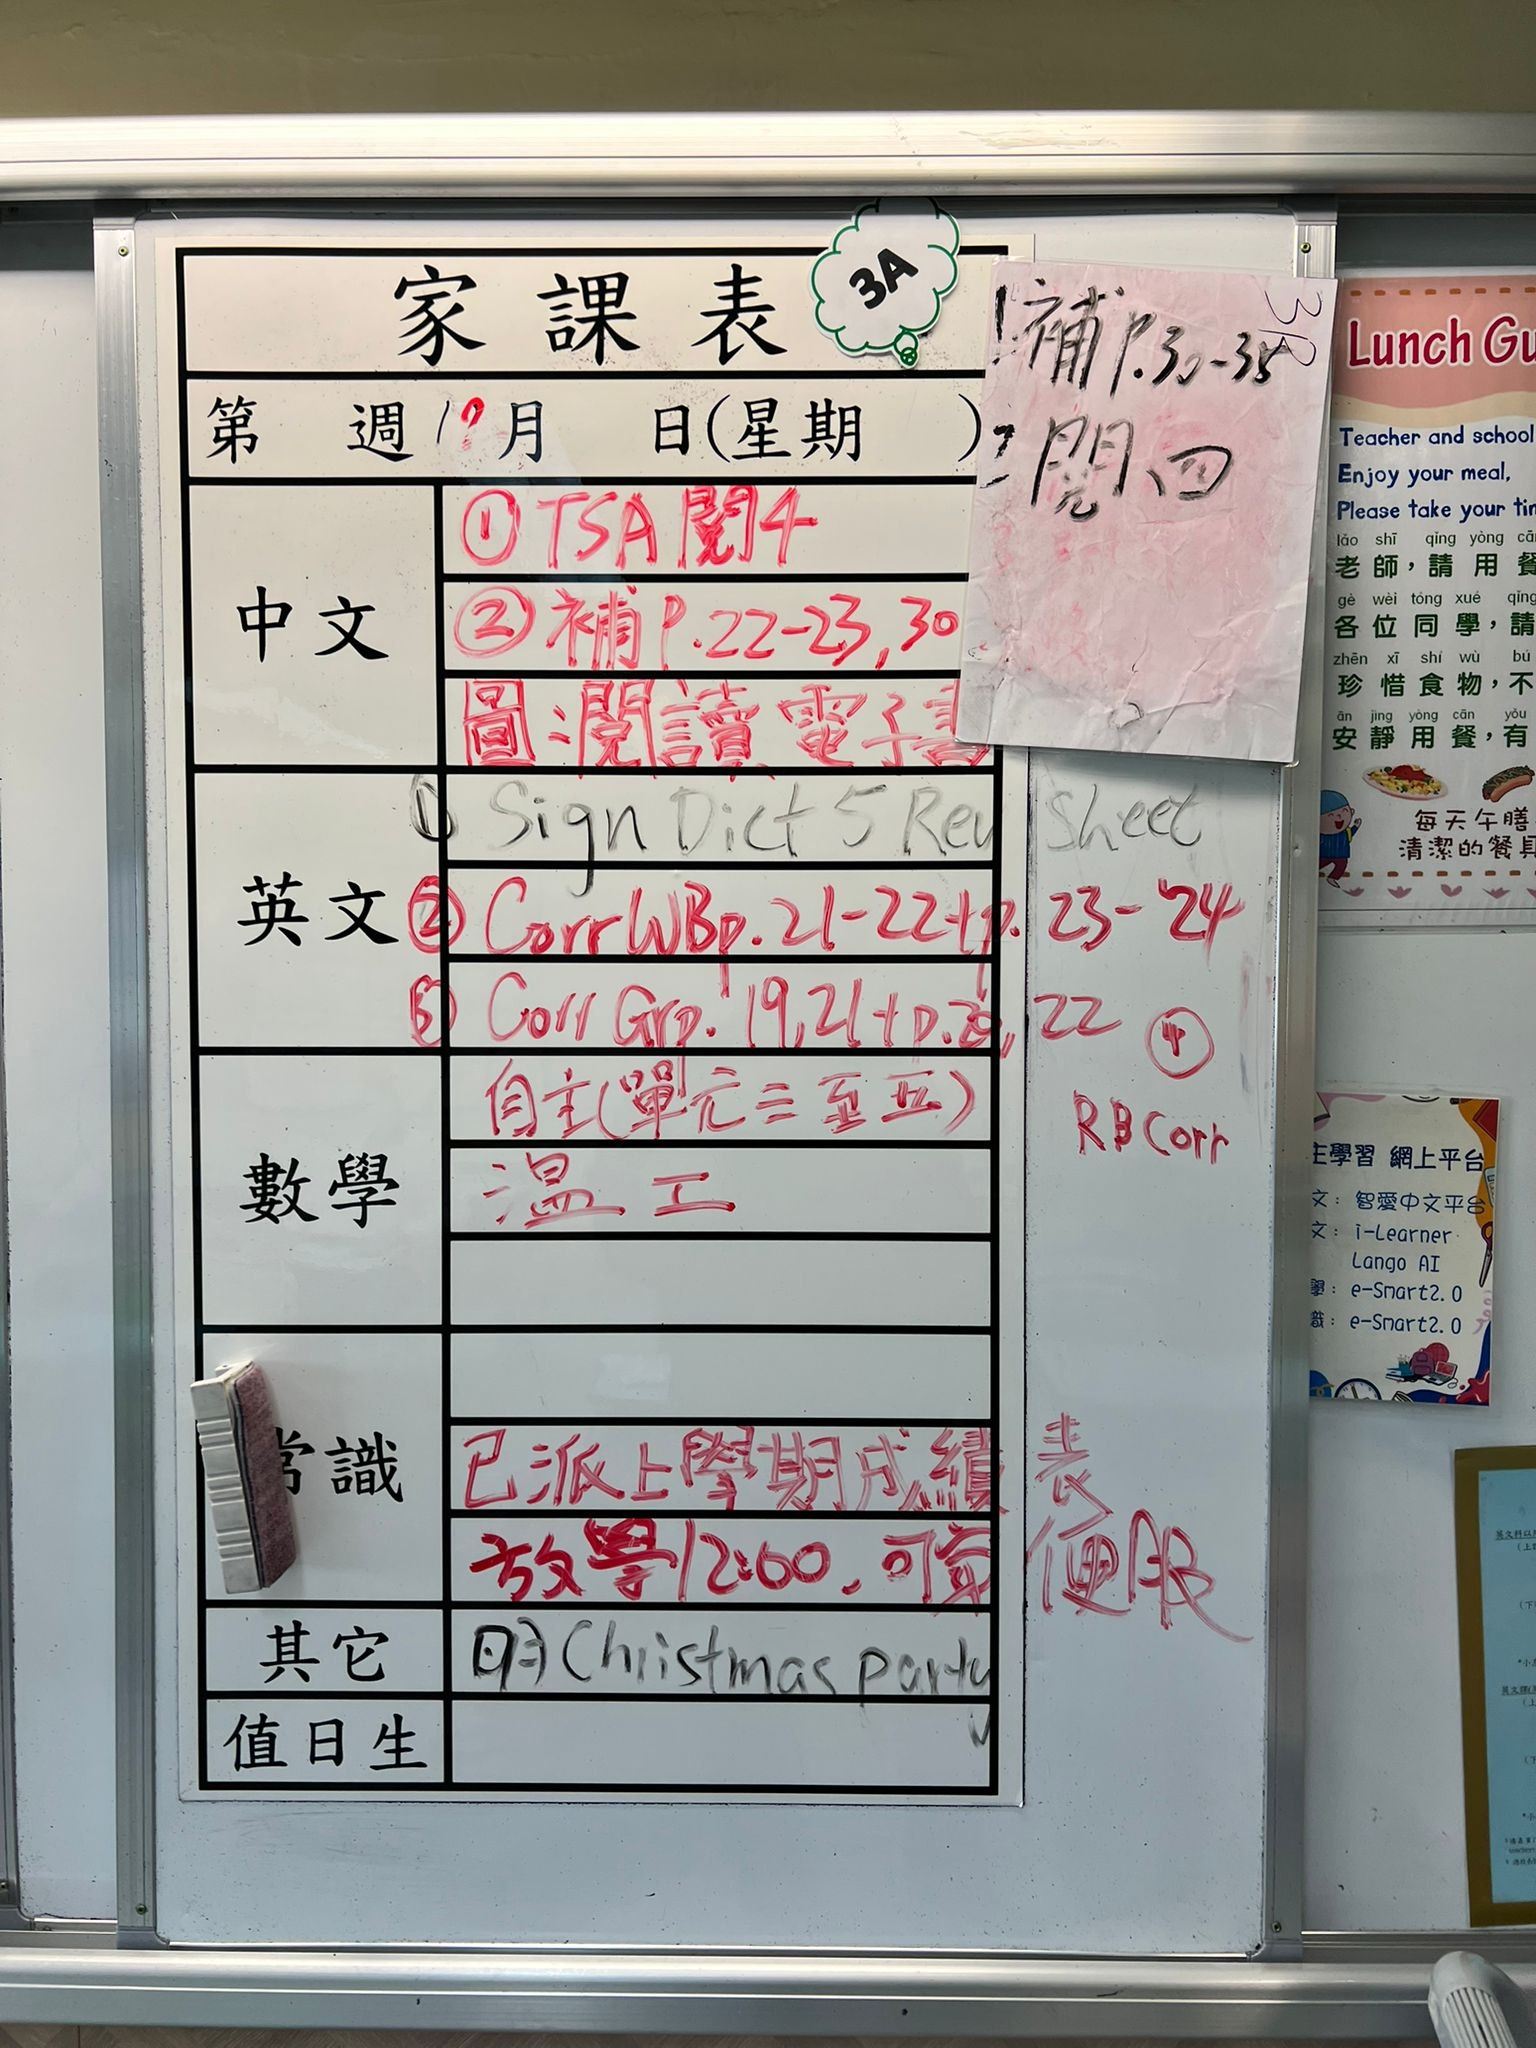 家課表
3A
第 週 12月 日(星期 )
中文
① TSA 閱4
② 補 P.22-23, 30
圖:閱讀電子書
英文
① Sign Dict 5 Rev Sheet
② Corr WB p. 21-22 + p. 23-24
③ Corr Gr p. 19, 21 + p. 20, 22
④
RB Corr
數學
自主(單元三至五)
溫工
常識
已派上學期成績表
放學12:00, 可穿便服
其它
明 Christmas party
值日生
3B
1. 補 P.30-35
2. 閱四
Lunch Gu
Teacher and school
Enjoy your meal,
Please take your tim
lǎo shī qǐng yòng cān
老師,請用餐
gè wèi tóng xué qǐng
各位同學,請
zhēn xī shí wù bú
珍惜食物,不
ān jìng yòng cān yǒu
安靜用餐,有
每天午膳
清潔的餐具
主學習 網上平台
文: 智愛中文平台
文: i-Learner
Lango AI
學: e-Smart2.0
識: e-Smart2.0